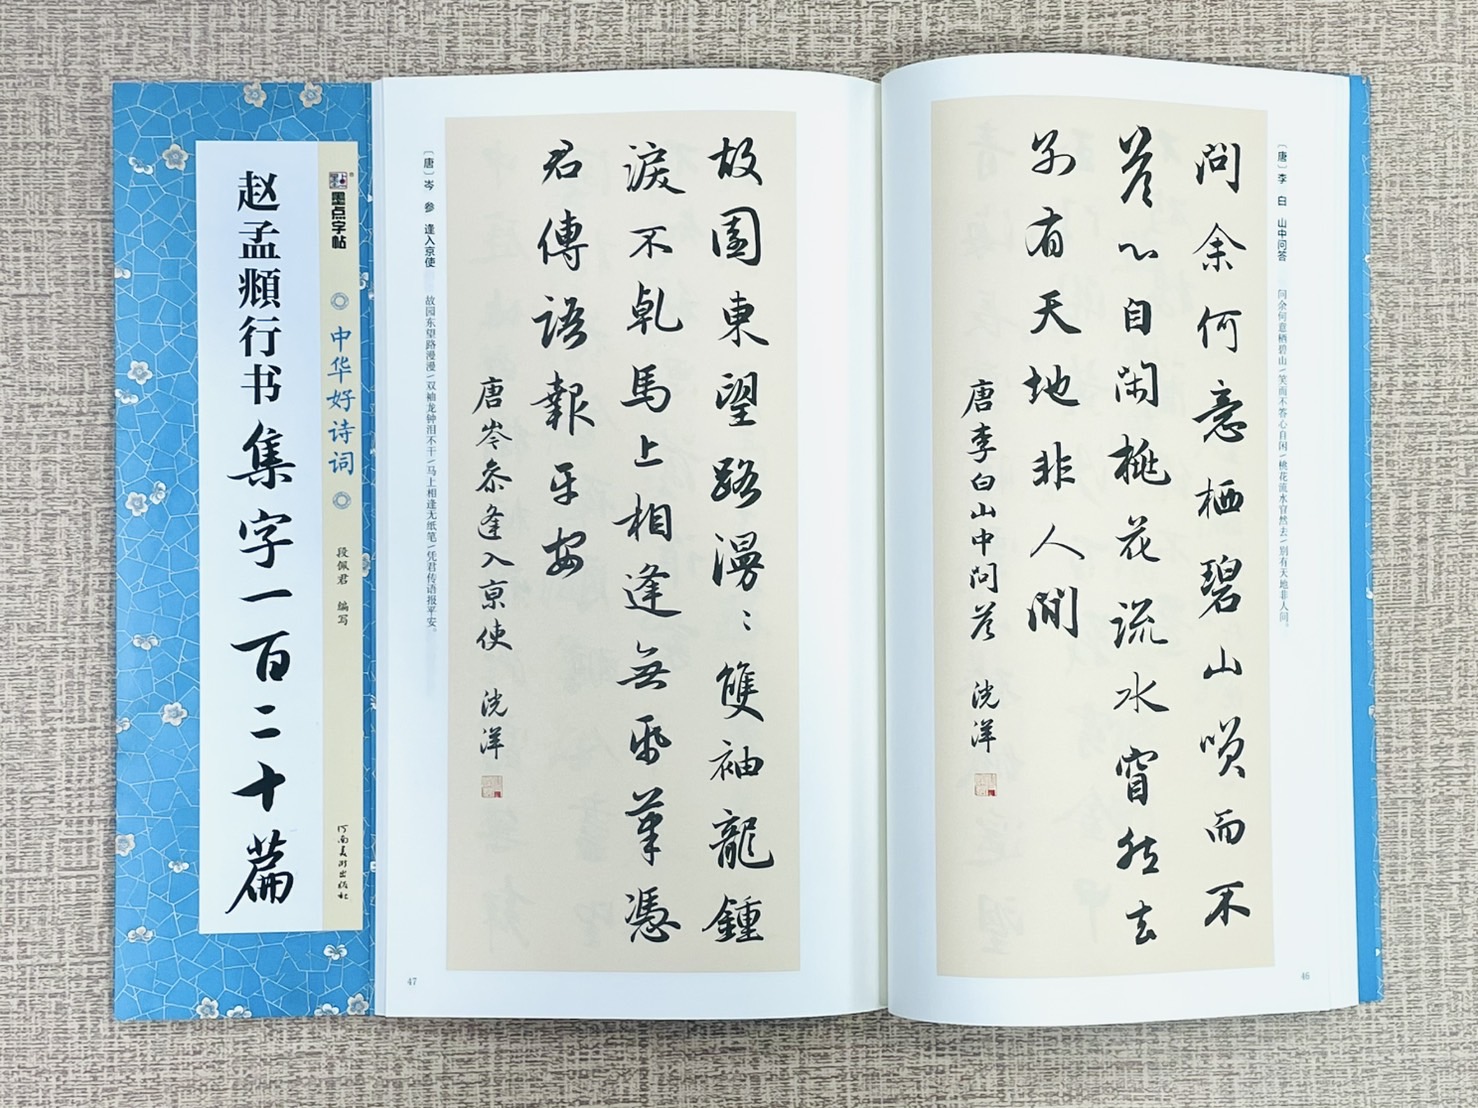 〔唐〕李 白 山中问答 问余何意栖碧山/笑而不答心自闲/桃花流水窅然去/别有天地非人间。
問余何意栖碧山咲而不
荅心自閑桃花流水窅然去
别有天地非人間
唐李白山中問荅 洸洋
46
故園東望路漫〻雙袖龍鍾
淚不乹馬上相逢無紙筆憑
君傳語報平安
唐岑參逢入京使 洸洋
〔唐〕岑 参 逢入京使 故园东望路漫漫/双袖龙钟泪不干/马上相逢无纸笔/凭君传语报平安。
47
墨点字帖
中华好诗词
段佩君 编写
河南美术出版社
赵孟頫行书集字一百二十篇